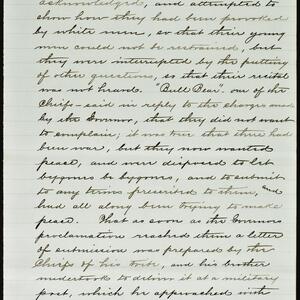 acknowledged, and attempted to
show how they had been provoked
by white men, so that their young
men could not be restrained, but
they were interrupted by the putting
of other questions, so that their recital
was not heard. "Bull Bear" one of the
Chiefs - said in reply to the charges made
by the Governor, that they did not want
to complain; it was true that there had
been war, but they now wanted
peace, and were disposed to let
bygones be bygones, and to submit
to any terms prescribed to them, and
had all along been trying to make
peace. That as soon as the Governor's
proclamation reached them a letter
of submission was prepared by the
Chiefs of his tribe, and his brother
undertook to deliver it at a military
post, which he approached with